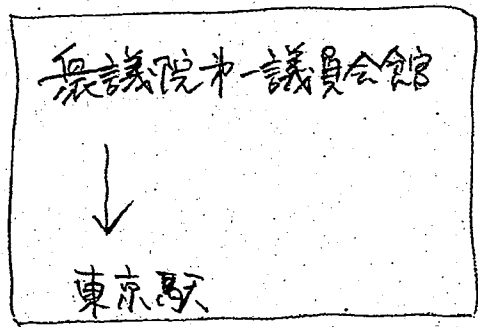 衆議院第一議員会館
↓
東京駅